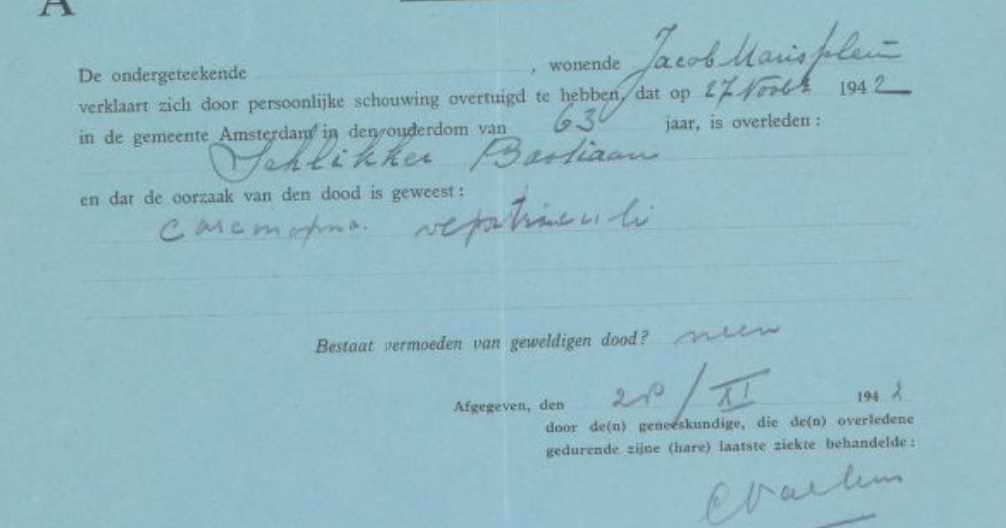 A
De ondergeteekende , wonende Jacob Marisplein
verklaart zich door persoonlijke schouwing overtuigd te hebben, dat op 27 Novbr 1942
in de gemeente Amsterdam in den ouderdom van 63 jaar, is overleden :
Schlikker Bastiaan
en dat de oorzaak van den dood is geweest :
carcinoma ventriculi
Bestaat vermoeden van geweldigen dood? neen
Afgegeven, den 28/XI 1942
door de(n) geneeskundige, die de(n) overledene
gedurende zijne (hare) laatste ziekte behandelde :